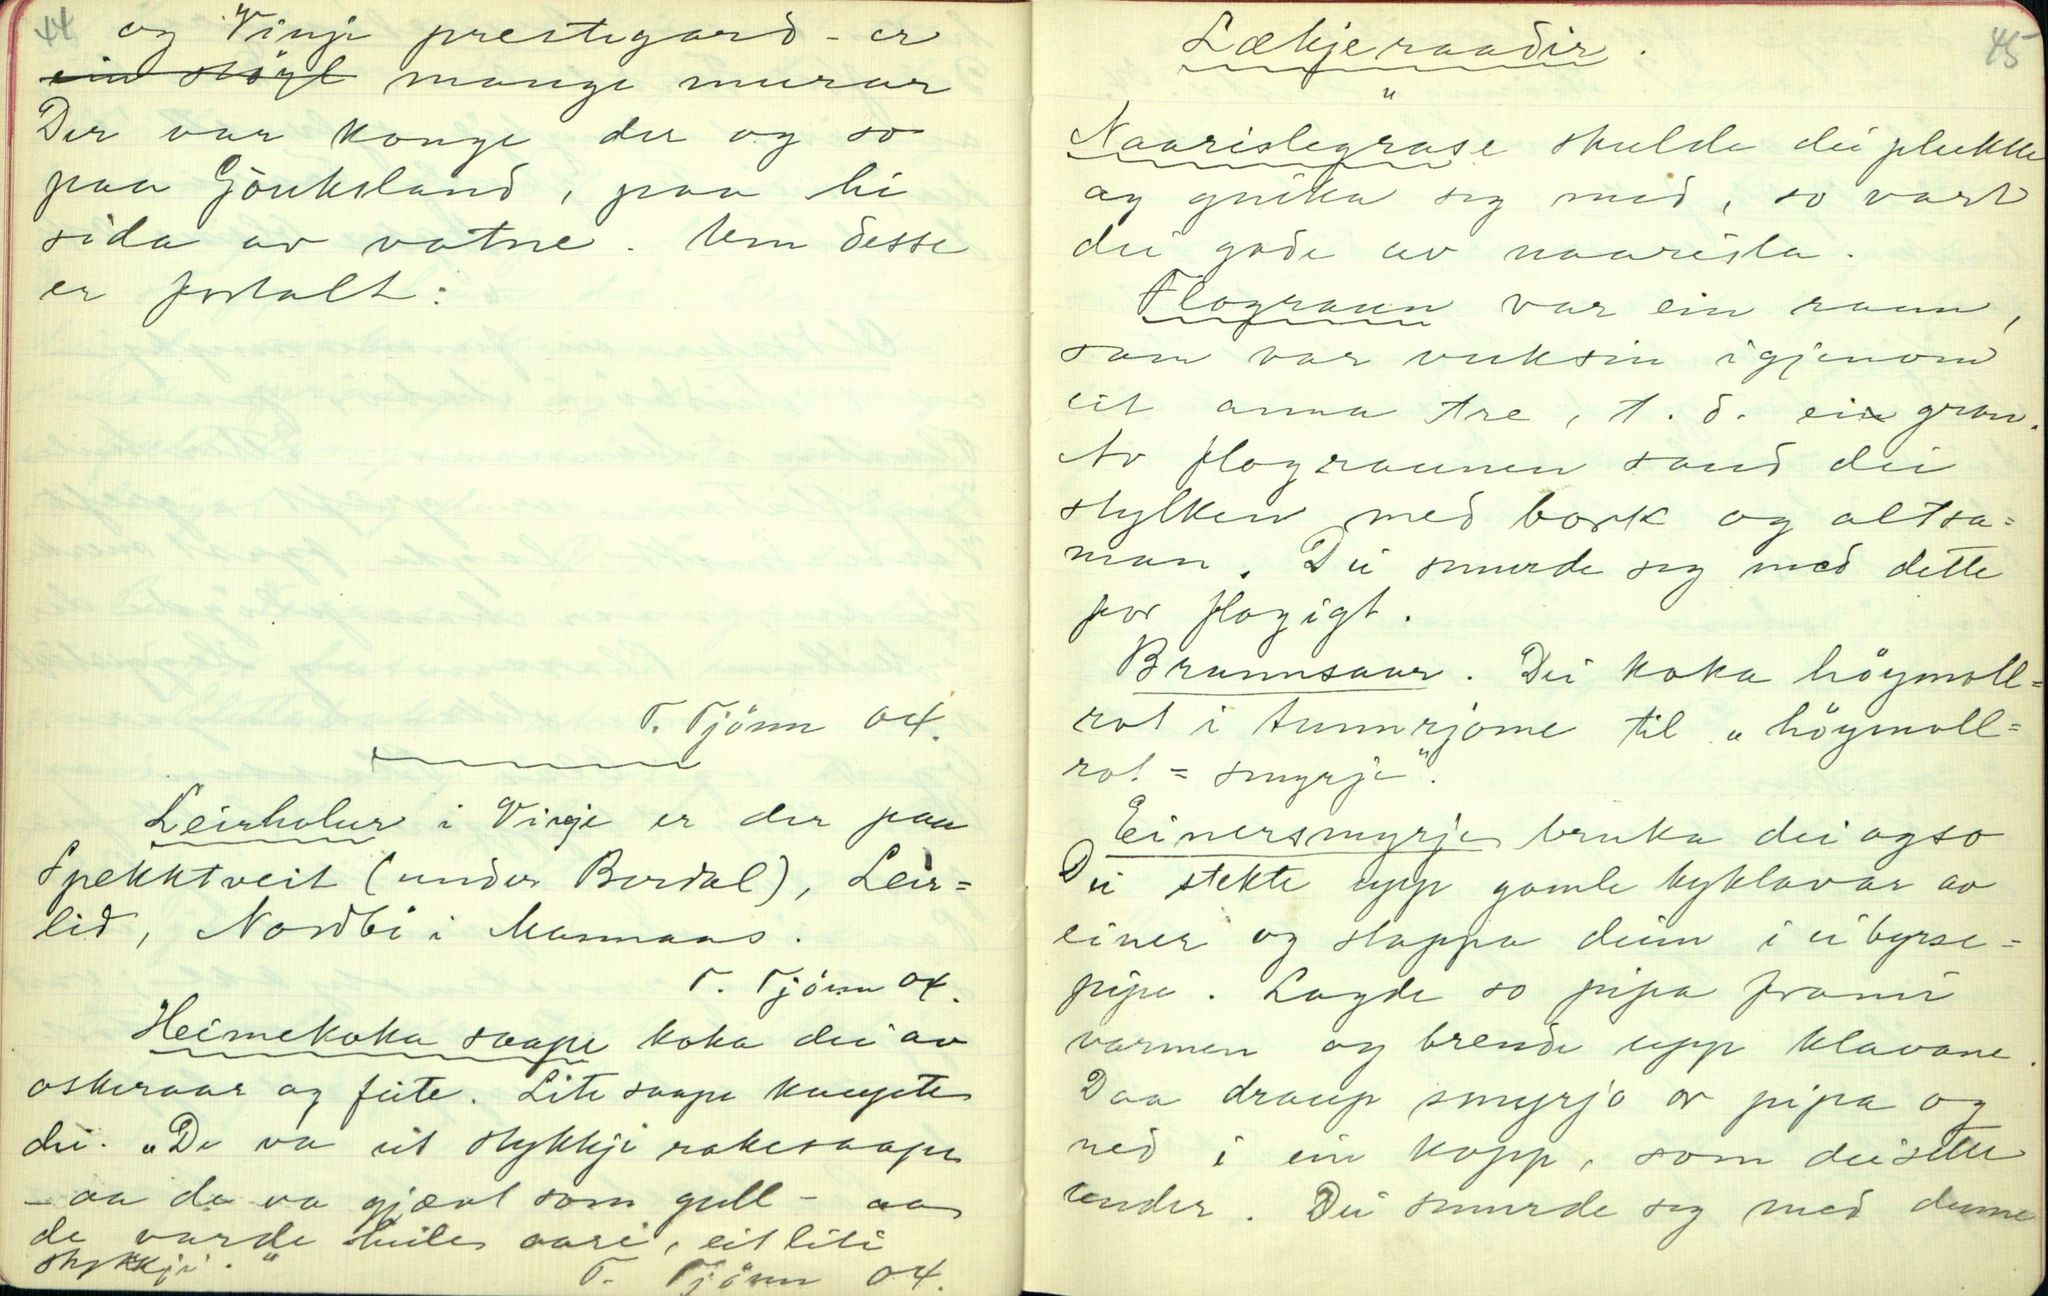 44
og Vinje prestegard - er
ein skógl mange murar
Der var konge der og so
paa Gjöuksland, paa hi
sida av vatne. Um desse
er fortalt:
T. Tjönn 04.
Leirholur i Vinje er der paa
Spekktveit (under Bordal), Leir=
lid, Nordbö i Mannaas.
T. Tjönn 04.
Heimekoka saape koka dei av
oskeraar og feite. Lite saape kaupte
dei. "De va eit stykkji rakesaape
- aa de va gjævt som gull - aa
de varde heile aari, eit liti
stykkji."
T. Tjönn 04.
45
Lækjeraadir.
"
Naarislegrase skulde dei plukke
og gnika seg med, so vart
dei gode av naarisla.
Flograun var ein raun,
som var vuksin igjenom
eit anna tre, t. d. ein gran.
Av flograunen saud dei
stylken med bork og altsa=
man. Dei smurde seg med dette
for flogigt.
Brunnsaar. Dei koka höymoll=
rot i tunnrjome til "höymoll=
rot = smyrje".
Einersmyrje bruka dei ogso
Dei stekte upp gamle kyklavar av
einer og stappa deim i ei byrse=
pipe. Lagde so pipa frami
varmen og brende upp klavane.
Daa draup smyrja or pipa og
ned i ein kopp, som dei sette
under. Dei smurde seg med denne